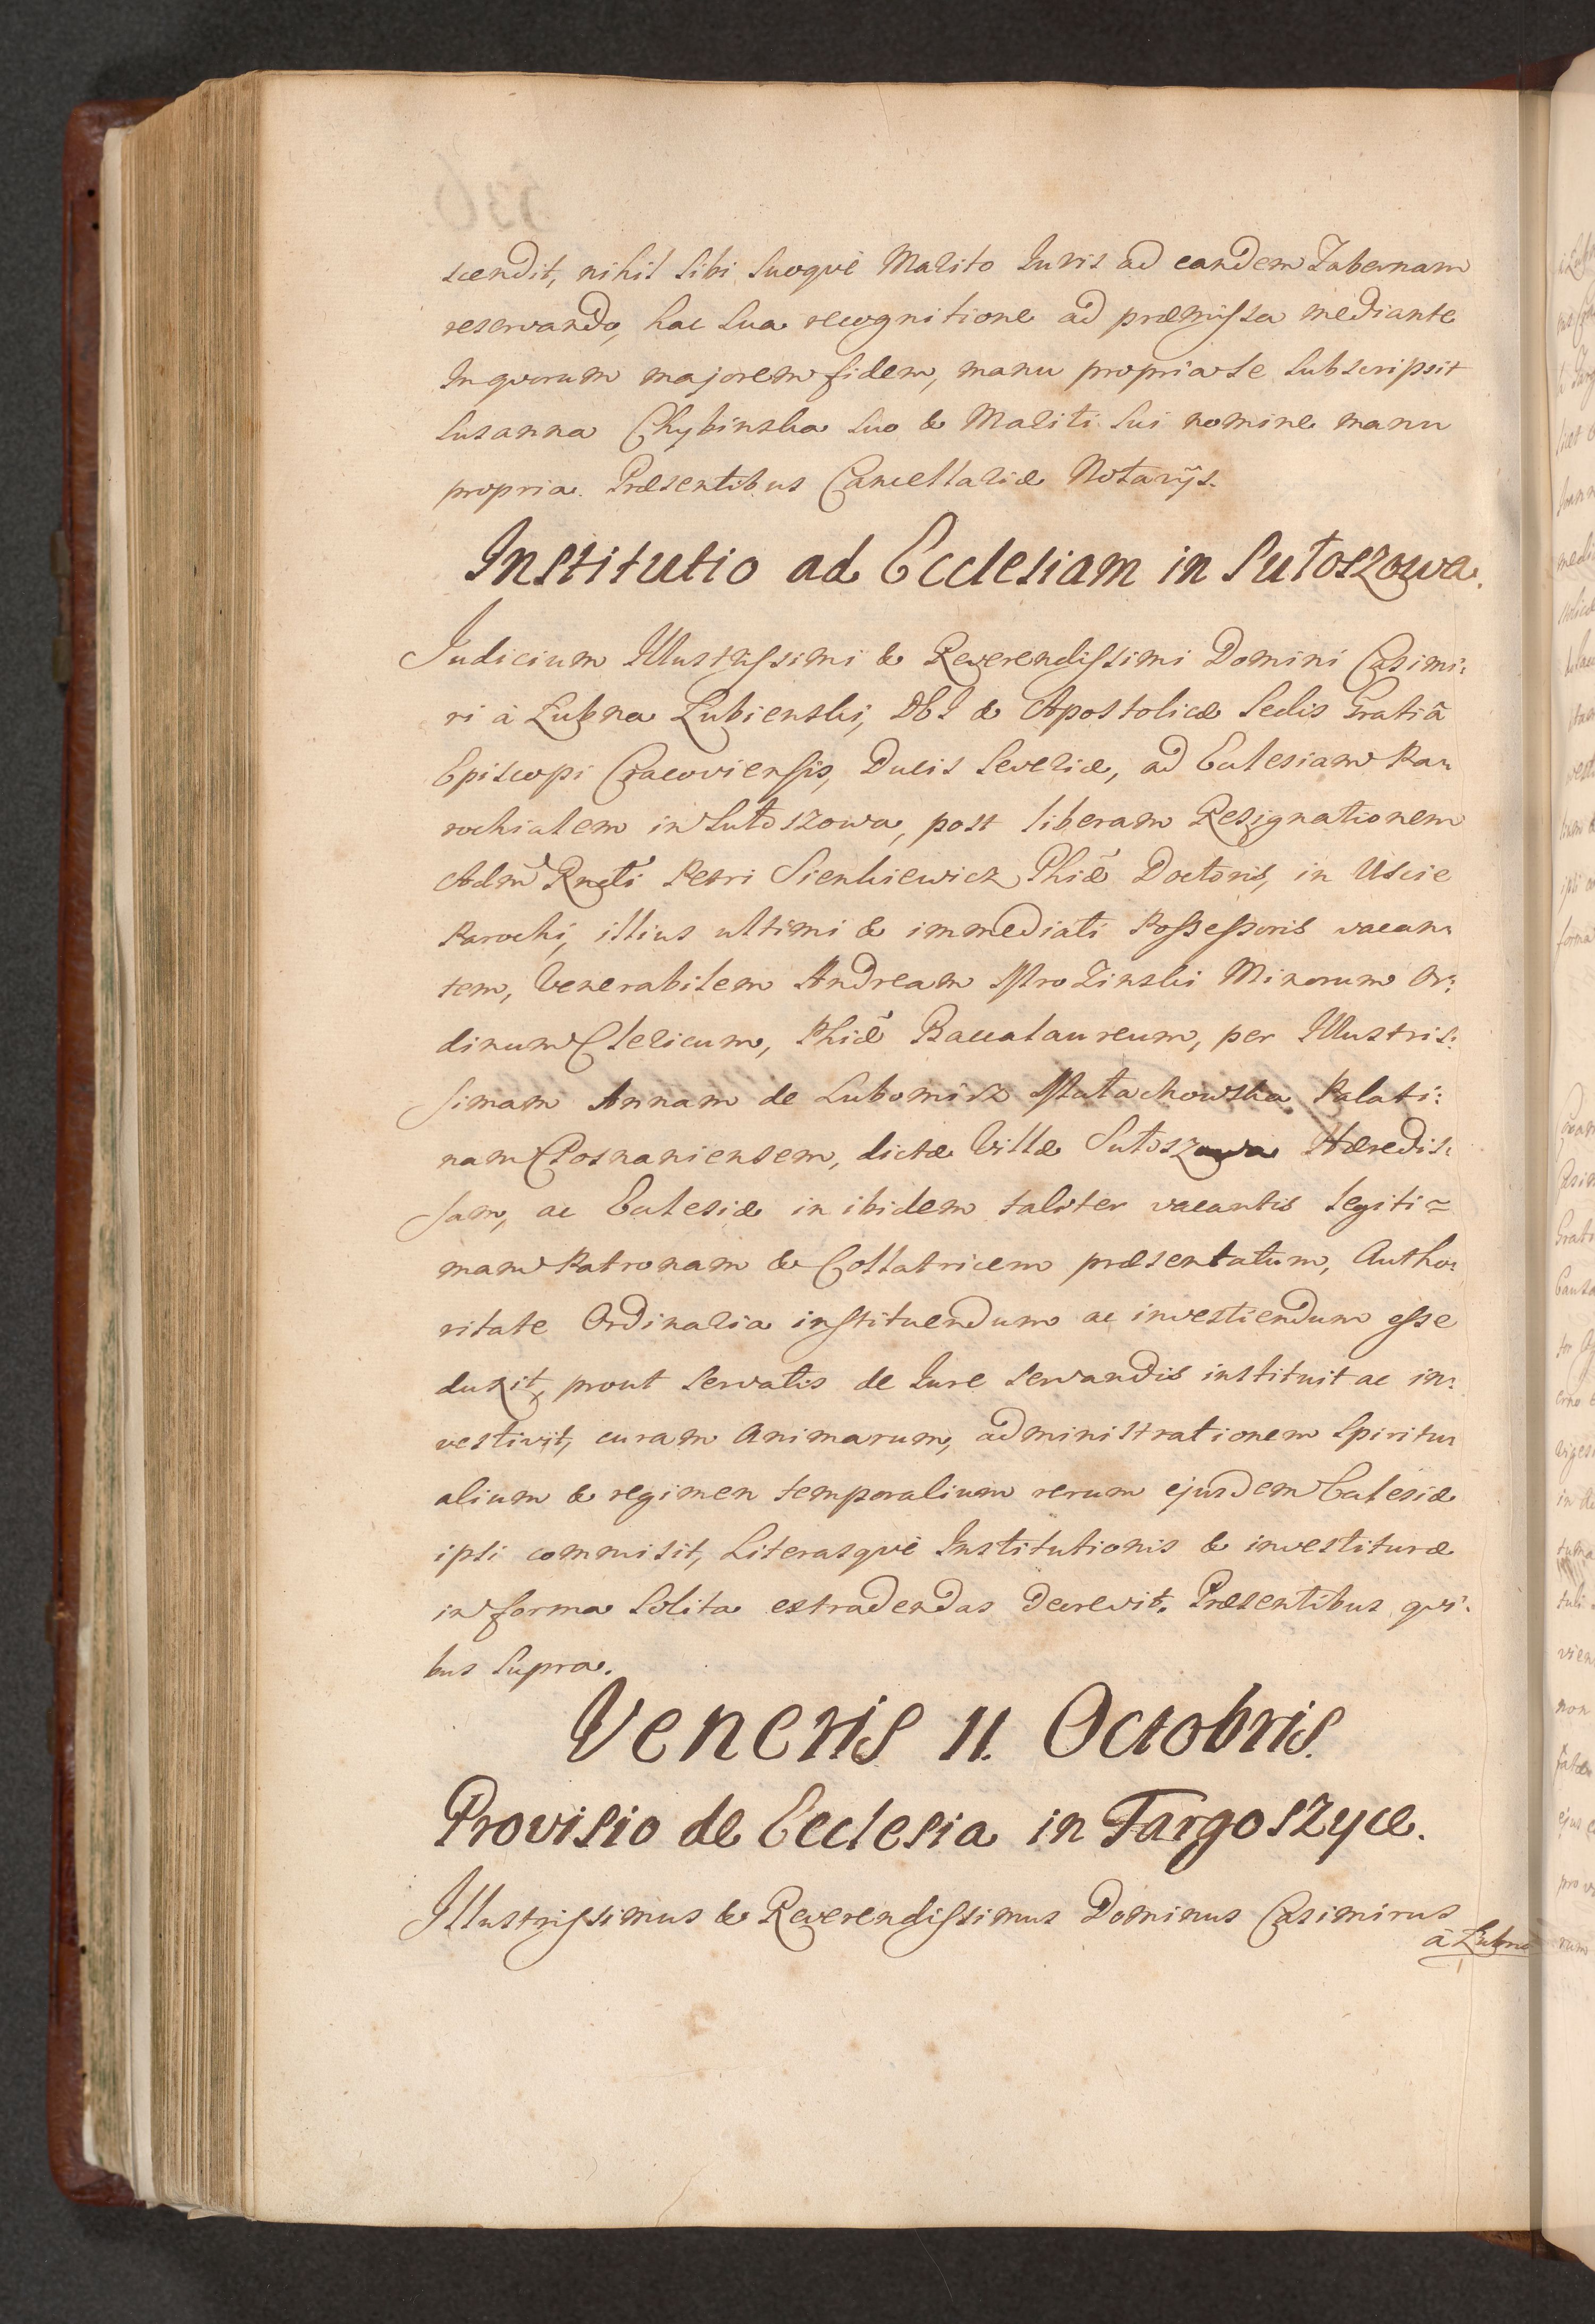 scendit, nihil sibi suoque Marito Juris ad eandem Tabernam
reservando, hac sua recognitione ad præmissa mediante
In quorum majorem fidem, manu propria se subscripsit
Susanna Chybinska suo & Mariti sui nomine manu
propria. Præsentibus Cancellariæ Notarijs.
Institutio ad Ecclesiam in Sułoszowa.
Judicium Illustrissimi & Reverendissimi Domini Casimi:
ri à Łubna Łubienski, D&S & Apostolicæ Sedis Gratiâ
Episcopi Cracoviensis, Ducis Severiæ, ad Ecclesiam Pa:
rochialem in Sułoszowa, post liberam Resignationem
Adm Rndi Petri Sienkiewicz Phiæ Doctoris, in Uscie
Parochi, illius ultimi & immediati Possessoris vacan:
tem, Venerabilem Andream Minorum Or:
dinum Clericum, Phiæ Baccalaureum, per Illustris:
simam Annam de Lubomirz Małachowska Palati:
nam Posnaniensem, dictæ Villæ Sułoszowa Hæredis:
sam, ac Ecclesiæ in ibidem taliter vacantis legiti=
mam Patronam & Collatricem præsentatum, Autho:
ritate Ordinaria instituendum ac investiendum esse
duxit, prout servatis de Jure servandis instituit ac in:
vestivit, curam animarum, administrationem Spiritu:
alium & regimen temporalium rerum ejusdem Ecclesiæ
ipsi commisit, Literasque Institutionis & investituræ
in forma solita extradendas decrevit. Præsentibus qui:
bus supra.
Veneris 11. Octobris.
Provisio de Ecclesia in Targoszyce.
Illustrissimus & Reverendissimus Dominus Casimirus
à Łubna